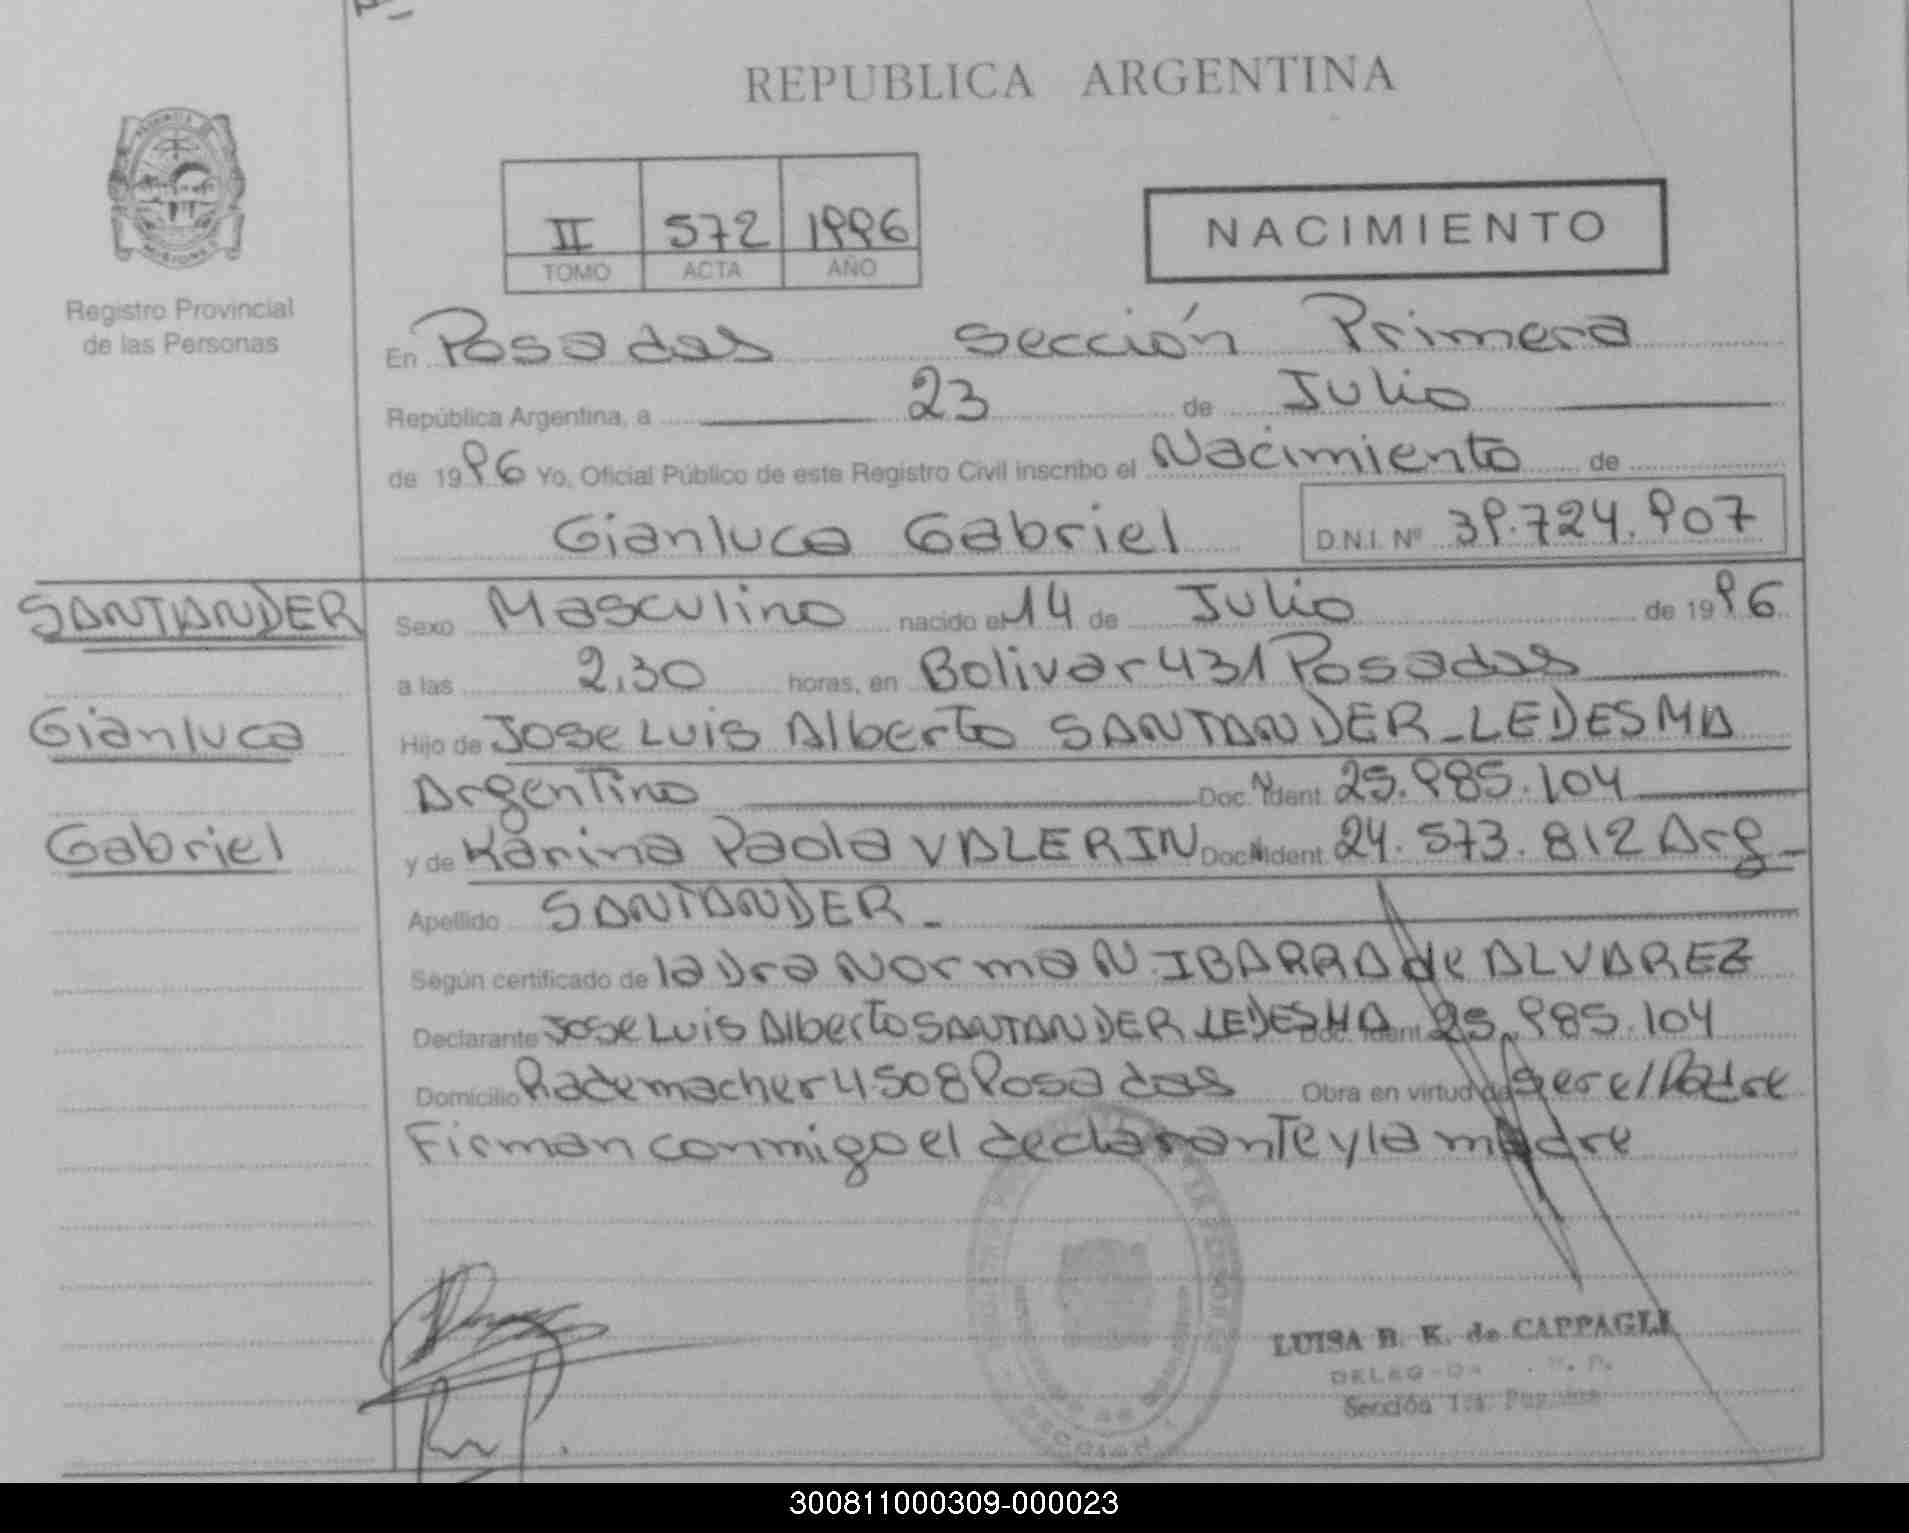 REPUBLICA ARGENTINA
II 572 1996
TOMO ACTA AÑO
NACIMIENTO
Registro Provincial
de las Personas
En Posadas Sección Primera
República Argentina, a 23 de Julio
de 1996 Yo, Oficial Público de este Registro Civil inscribo el Nacimiento de
Gianluca Gabriel D.N.I. Nº 39.724.907
SANTANDER
Gianluca
Gabriel
Sexo Masculino nacido el 14 de Julio de 1996
a las 2,30 horas, en Bolivar 431 Posadas
Hijo de Jose Luis Alberto SANTANDER_LEDESMA
Argentino Doc. N Ident. 25.985.104
y de Karina Paola VALERIN Doc. N Ident. 24.573.812 Arg_
Apellido SANTANDER_
Según certificado de la Dra Norma N. IBARRA de ALVAREZ
Declarante Jose Luis Alberto SANTANDER LEDESMA Doc. Ident. 25.985.104
Domicilio Rademacher 4508 Posadas Obra en virtud de ser el Padre
Firman conmigo el declarante y la madre
LUISA B. K. de CAPPAGLI
Sección 1ra.
300811000309-000023